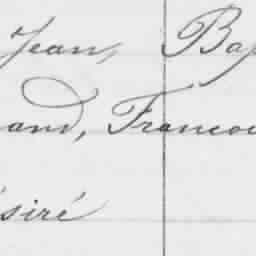 Jean, Bap
and, Francoi
ésiré